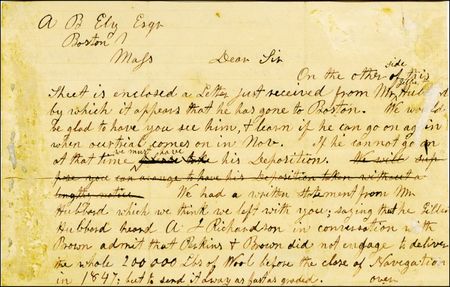 A B Ely Esqr
Boston
Mass Dear Sir
On the other side of this
Sheet is enclosed a Letter just received from Mr Hubbard
by which it appears that he has gone to Boston. We would
be glad to have you see him, & learn if he can go on again
when our trial comes on in Nov. If he cannot go on
at that time we must have his Deposition. We will sup
pose you can arrange to have his Deposition taken without a
lengthy notice. We had a written statement from Mr
Hubbard which we think we left with you; saying that he
Hubbard heard A J Richardson in conversation with
Brown admit that Perkins & Brown did not engage to deliver
the whole 200000 Lbs of Wool before the close of Navigation
in 1847; but to send it away as fast as graded. over